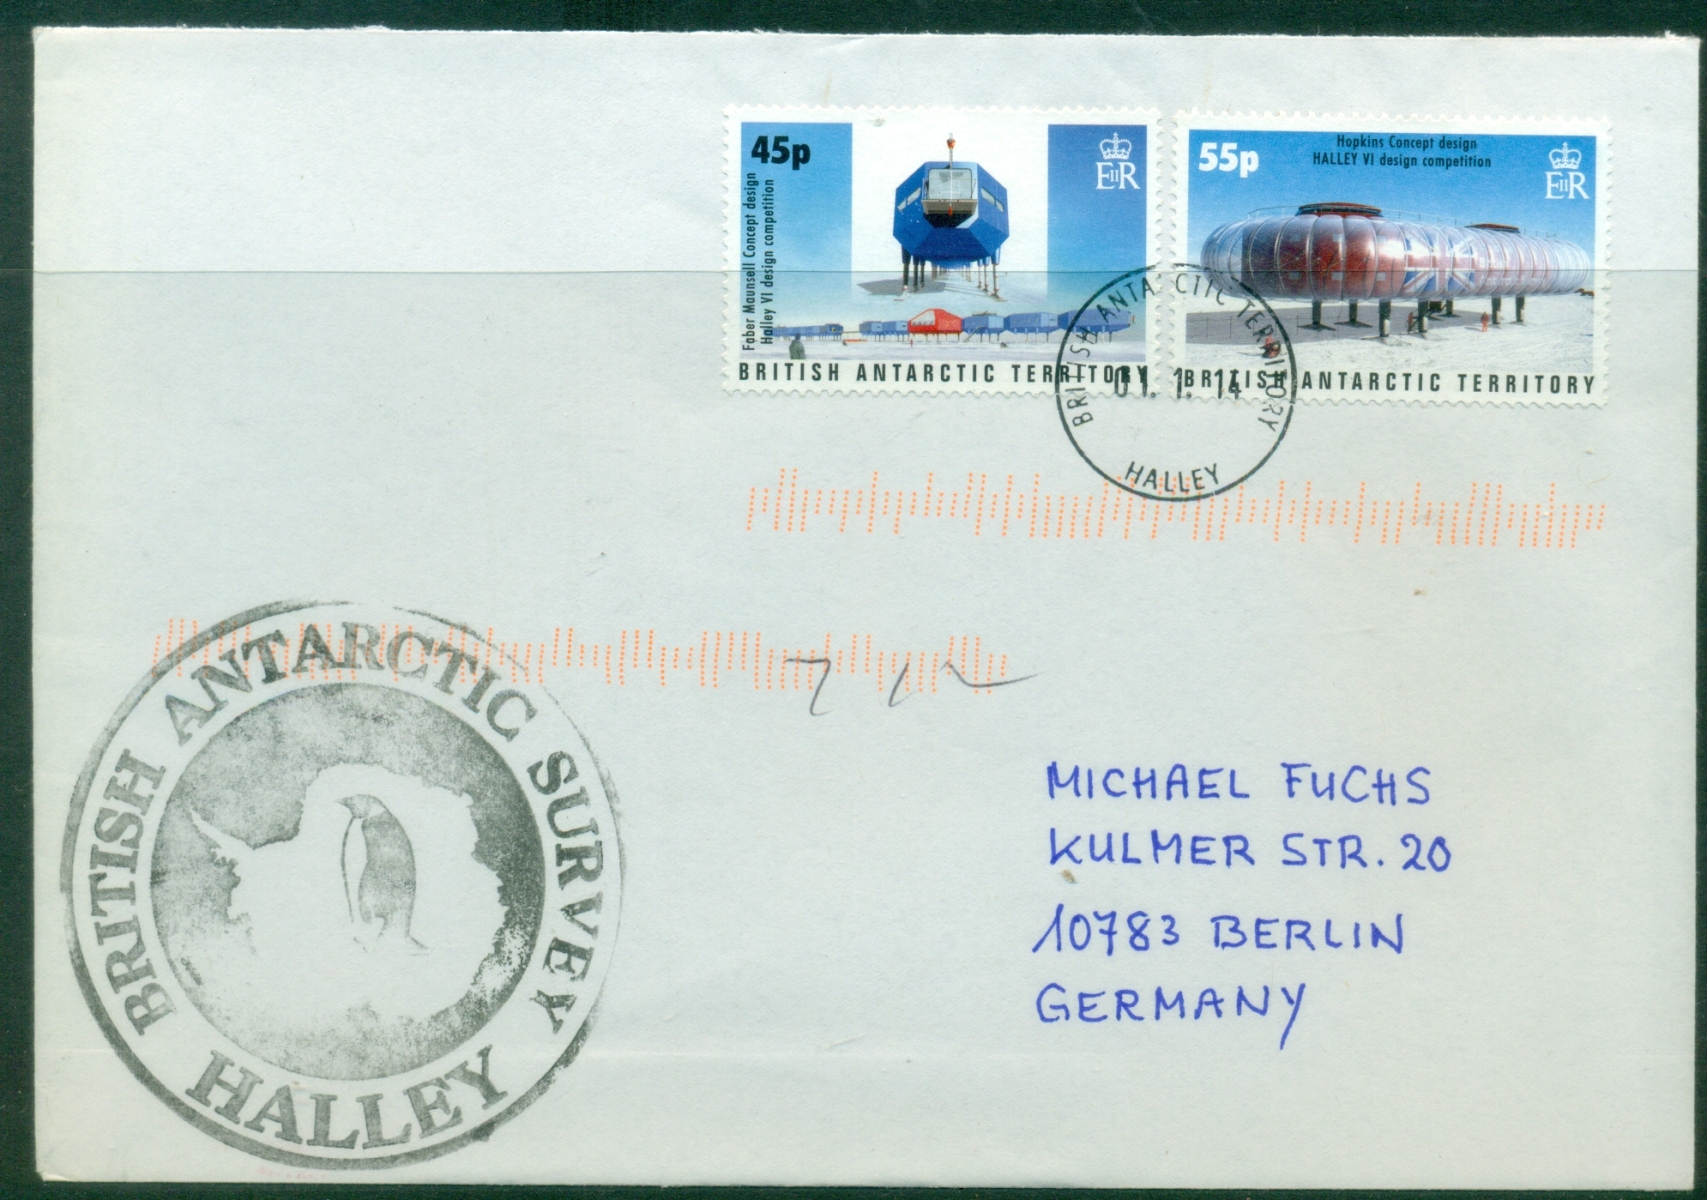 45p
Faber Maunsell Concept design
Halley VI design competition
EIIR
BRITISH ANTARCTIC TERRITORY
55p
Hopkins Concept design
HALLEY VI design competition
EIIR
BRITISH ANTARCTIC TERRITORY
BRITISH ANTARCTIC TERRITORY
01. 1. 14
HALLEY
BRITISH ANTARCTIC SURVEY
HALLEY
MICHAEL FUCHS
KULMER STR. 20
10783 BERLIN
GERMANY